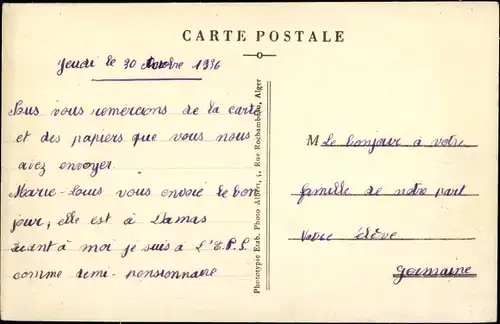 CARTE POSTALE
Jeudi le 30 1936
Nous vous remercions de la carte
et des papiers que vous nous
avez envoyer
Marie-Louis vous envoie le bon
jour, elle est à
Quant à moi je suis à L'E.P.S
comme demi-pensionnaire
Phototypie Etab. Photo Albert, 1, Rue Rochambeau, Alger
M Le bonjour à votre
famille de notre part
Votre élève
Germaine